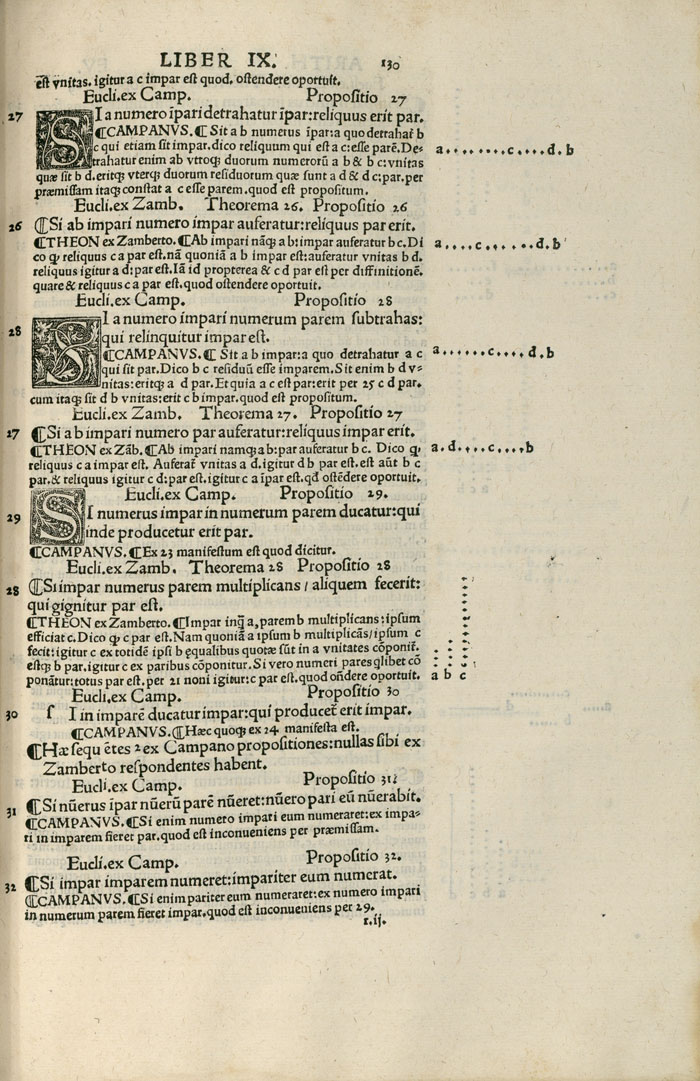 LIBER IX. 130
est vnitas. igitur a c impar est quod. ostendere oportuit.
Eucli.ex Camp. Propositio 27
27 SI a numero īpari detrahatur īpar:reliquus erit par.
¶CAMPANVS.¶ Sit a b numerus īpar:a quo detrahat̃ b
c qui etiam sit impar.dico reliquum qui est a c:esse parē.De=
trahatur enim ab vtroq; duorum numerorū a b & b c:vnitas
quæ sit b d.eritq; vterq; duorum residuorum quæ sunt a d & d c:par.per
præmissam itaq; constat a c esse parem.quod est propositum.
a........c....d.b
Eucli.ex Zamb. Theorema 26. Propositio 26
26 ¶Si ab impari numero impar auferatur:reliquus par erit.
¶THEON ex Zamberto.¶Ab impari nāq; a b:impar auferatur b c. Di
co ꝙ reliquus c a par est.nā quoniā a b impar est:auferatur vnitas b d.
reliquus igitur a d:par est.Iā id propterea & c d par est per diffinitionē.
quare & reliquus c a par est.quod ostendere oportuit.
a....c......d.b
Eucli.ex Camp. Propositio 28
28 SI a numero impari numerum parem subtrahas:
qui relinquitur impar est.
¶CAMPANVS.¶ Sit a b impar:a quo detrahatur a c
qui sit par.Dico b c residuū esse imparem.Sit enim b d v=
nitas:eritq; a d par.Et quia a c est par:erit per 25 c d par.
cum itaq; sit d b vnitas:erit c b impar.quod est propositum.
a......c....d.b
Eucli.ex Zamb. Theorema 27. Propositio 27
27 ¶Si ab impari numero par auferatur:reliquus impar erit.
¶THEON ex Zāb. ¶Ab impari namq; a b:par auferatur b c. Dico ꝙ
reliquus c a impar est. Auferat̃ vnitas a d.igitur d b par est.est aūt b c
par.& reliquus igitur c d:par est.igitur c a īpar est.qd̃ ostēdere oportuit.
a.d....c....b
Eucli.ex Camp. Propositio 29.
29 SI numerus impar in numerum parem ducatur:qui
inde producetur erit par.
¶CAMPANVS.¶Ex 23 manifestum est quod dicitur.
Eucli.ex Zamb. Theorema 28 Propositio 28
28 ¶Si impar numerus parem multiplicans / aliquem fecerit:
qui gignitur par est.
¶THEON ex Zamberto.¶Impar inq̄ a,parem b multiplicans:ipsum
efficiat c. Dico ꝙ c par est. Nam quoniā a ipsum b multiplicās/ipsum c
fecit:igitur c ex totidē ipsi b equalibus quotæ sūt in a vnitates cōponit̃.
estq; b par.igitur c ex paribus cōponitur. Si vero numeri pares qlibet cō
ponātur:totus par est.per 21 noni igitur:c par est.quod ondere oportuit.
a b c
Eucli.ex Camp. Propositio 30
30 f I in imparē ducatur impar:qui producet̃ erit impar.
¶CAMPANVS.¶Hæc quoq; ex 24 manifesta est.
¶Hæ sequētes 2 ex Campano propositiones:nullas sibi ex
Zamberto respondentes habent.
Eucli.ex Camp. Propositio 31
31 ¶Si nūerus īpar nūerū parē nūeret:nūero pari eū nūerabit.
¶CAMPANVS.¶Si enim numero impari eum numeraret:ex impa=
ri in imparem fieret par.quod est inconueniens per præmissam.
Eucli.ex Camp. Propositio 32.
32 ¶Si impar imparem numeret:impariter eum numerat.
¶CAMPANVS.¶Si enim pariter eum numeraret:ex numero impari
in numerum parem fieret impar.quod est inconueniens per 29.
r.ij.